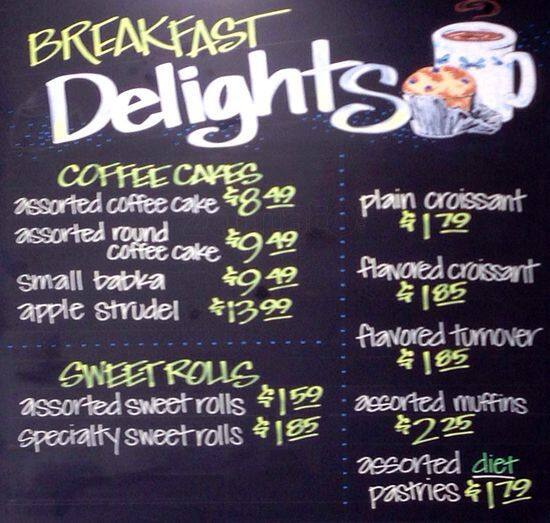 BREAKFAST
Delights
COFFEE CAKES
assorted coffee cake $8.49
assorted round
coffee cake $9.49
small babka $9.49
apple strudel $13.99
SWEET ROLLS
assorted sweet rolls $1.59
specialty sweet rolls $1.85
plain croissant
$1.79
flavored croissant
$1.85
flavored turnover
$1.85
assorted muffins
$2.25
assorted diet
pastries $1.79